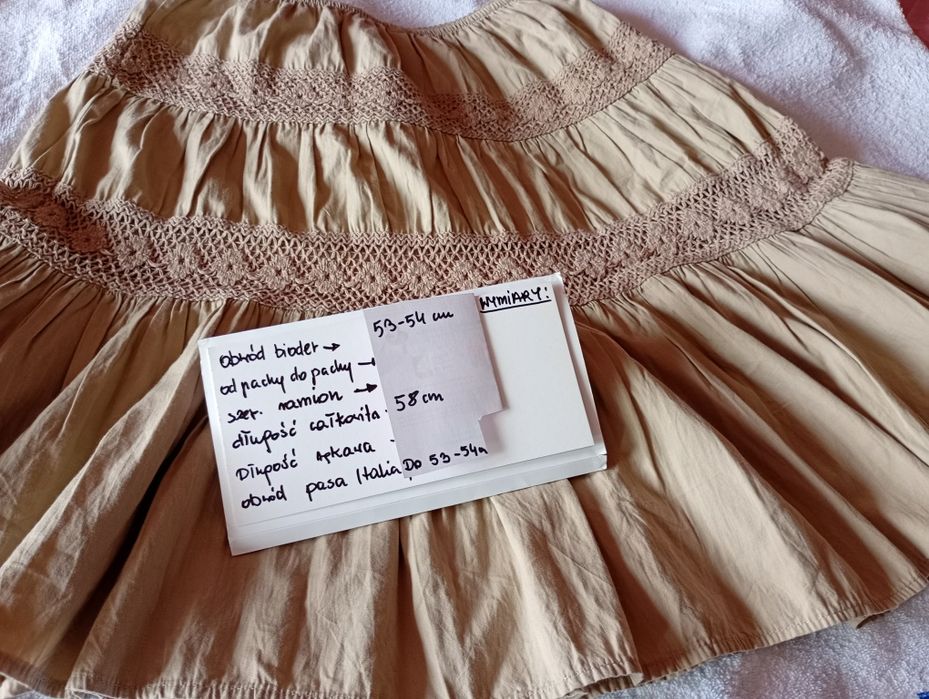 WYMIARY:
obwód bioder → 53-54 cm
od pachy do pachy →
szer. ramion →
długość całkowita 58 cm
Długość rękawa
obwód pasa /talia Do 53-54